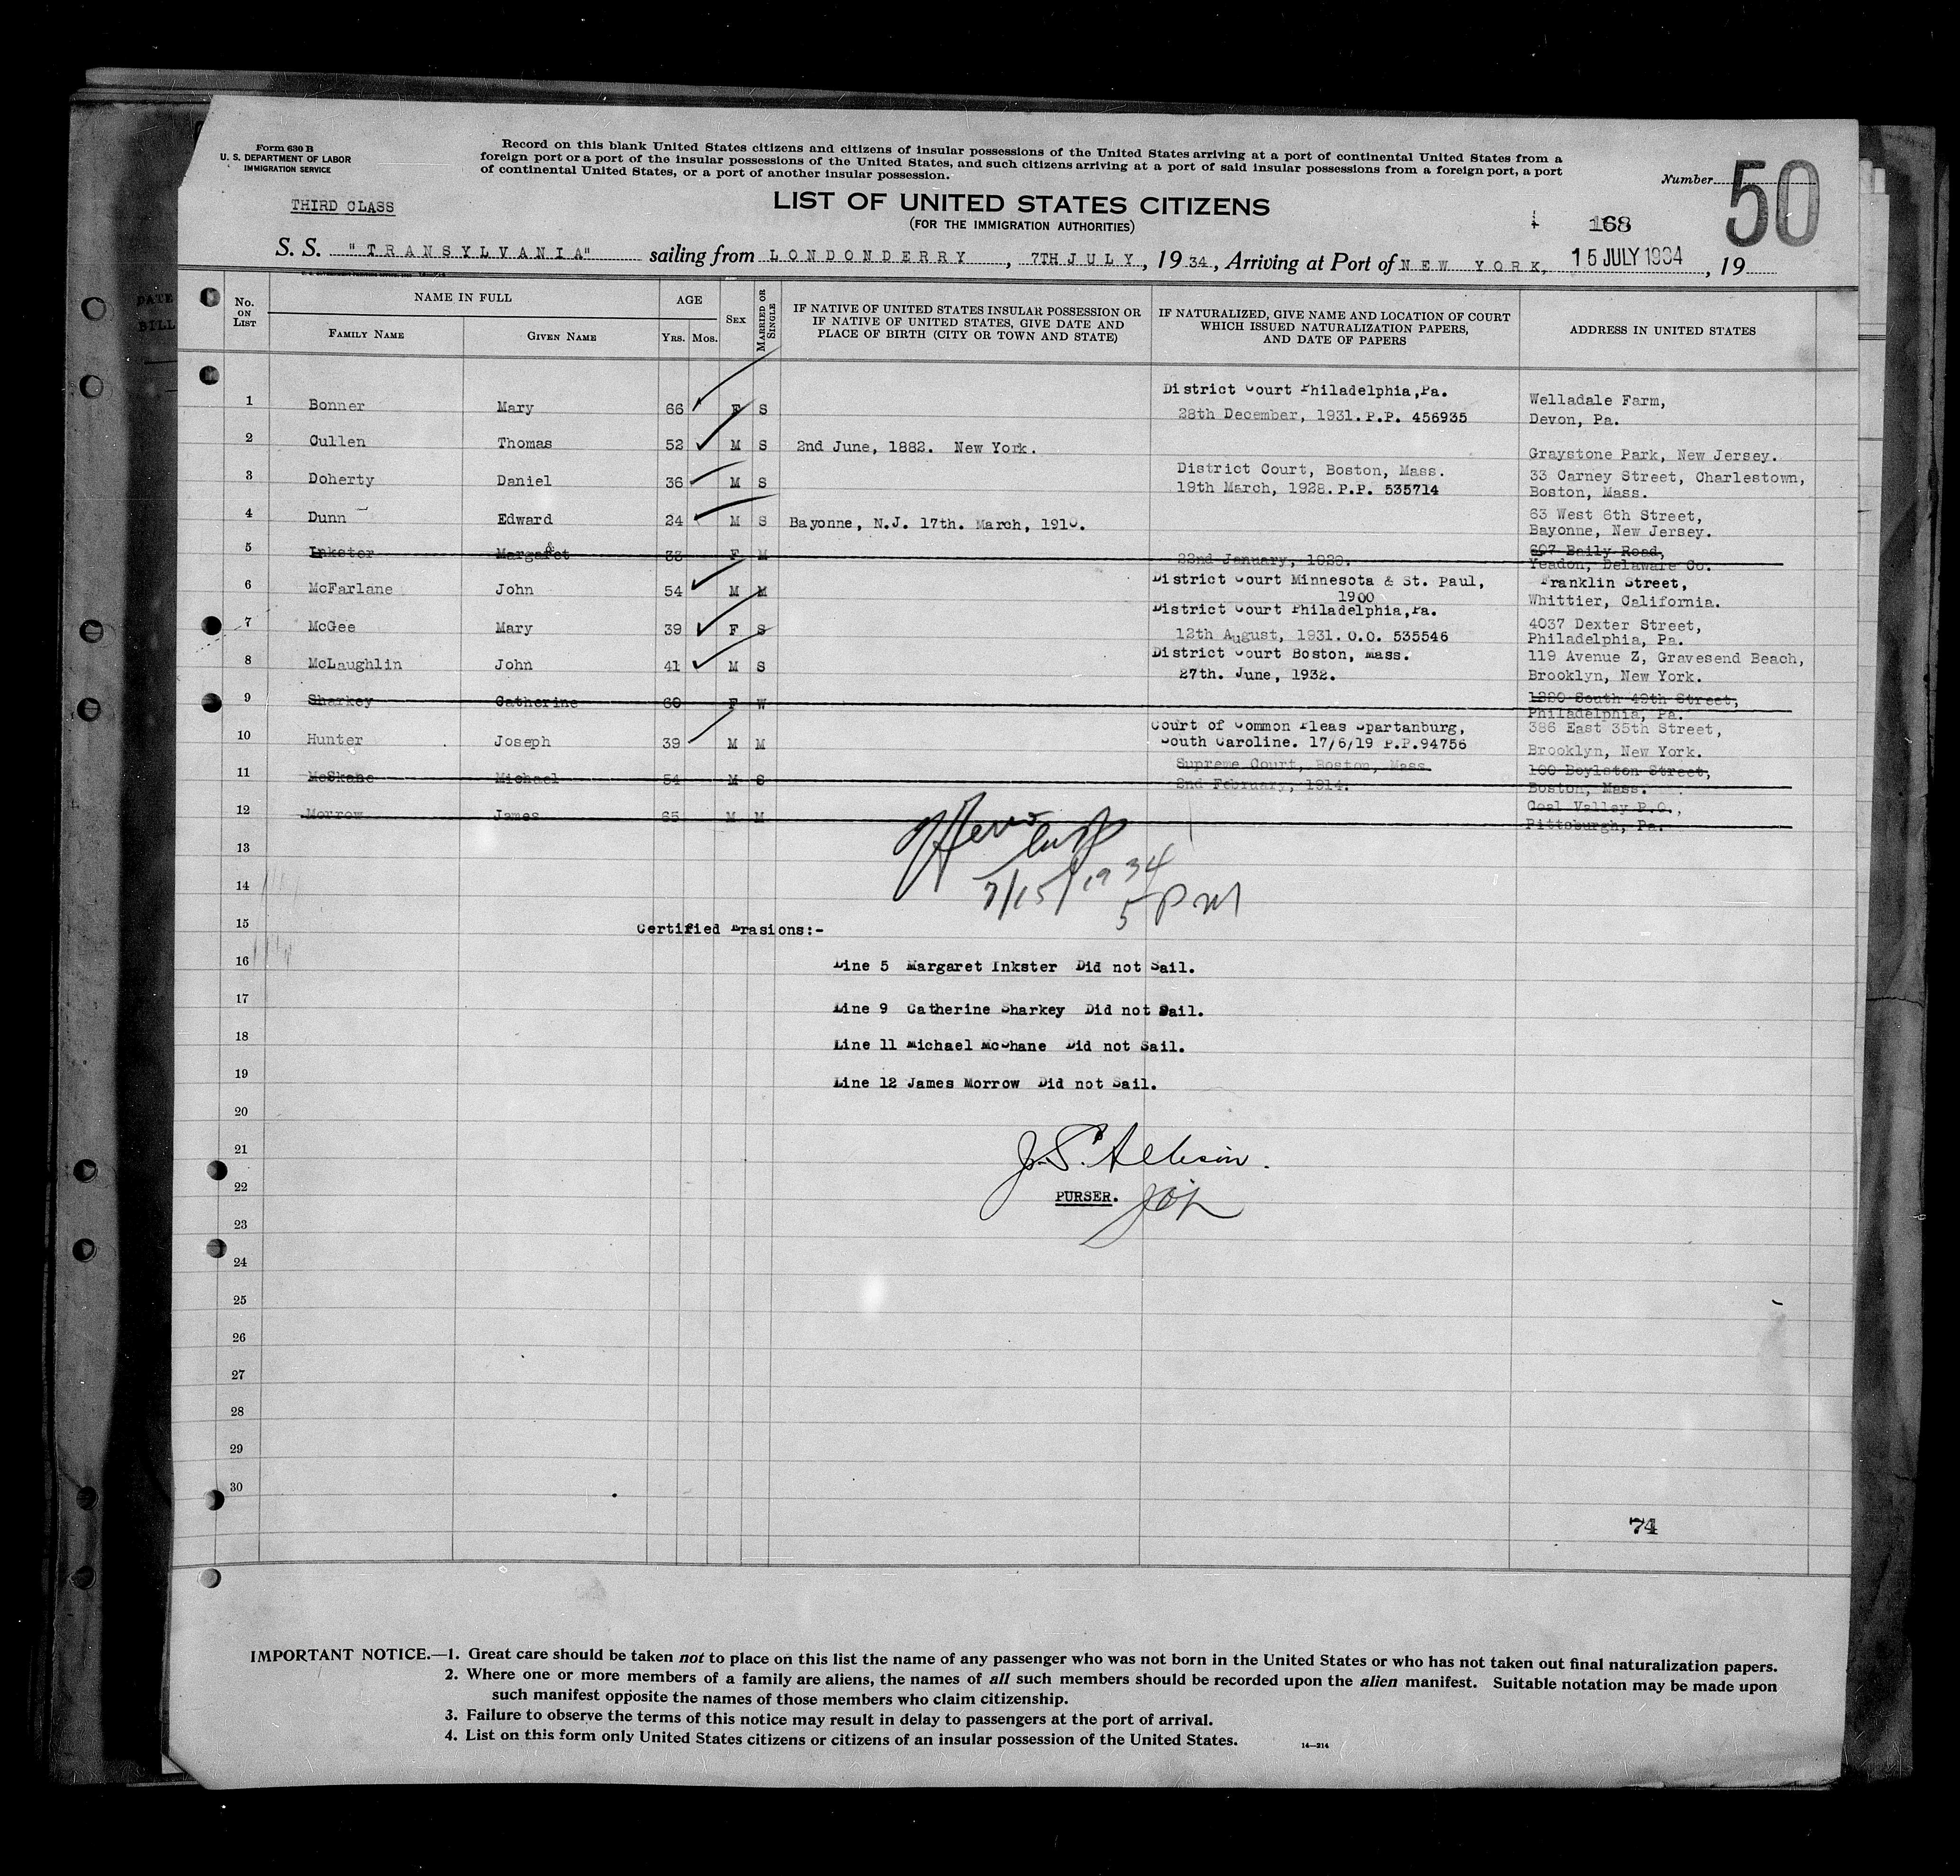 Form 630 B
U. S. DEPARTMENT OF LABOR
IMMIGRATION SERVICE
Record on this blank United States citizens and citizens of insular possessions of the United States arriving at a port of continental United States from a
foreign port or a port of the insular possessions of the United States, and such citizens arriving at a port of said insular possessions from a foreign port, a port
of continental United States, or a port of another insular possession.
Number 50
THIRD CLASS
LIST OF UNITED STATES CITIZENS
(FOR THE IMMIGRATION AUTHORITIES)
168
S. S. "TRANSYLVANIA" sailing from LONDONDERRY, 7TH JULY, 1934, Arriving at Port of NEW YORK, 15 JULY 1934, 19
DATE
BILL
No. ON LIST
NAME IN FULL
FAMILY NAME
GIVEN NAME
AGE
YRS. MOS.
SEX
MARRIED OR SINGLE
IF NATIVE OF UNITED STATES INSULAR POSSESSION OR
IF NATIVE OF UNITED STATES, GIVE DATE AND
PLACE OF BIRTH (CITY OR TOWN AND STATE)
IF NATURALIZED, GIVE NAME AND LOCATION OF COURT
WHICH ISSUED NATURALIZATION PAPERS,
AND DATE OF PAPERS
ADDRESS IN UNITED STATES
1 Bonner Mary 66 F S District Court Philadelphia,Pa. Welladale Farm,
28th December, 1931. P.P. 456935 Devon, Pa.
2 Cullen Thomas 52 M S 2nd June, 1882. New York. Graystone Park, New Jersey.
3 Doherty Daniel 36 M S District Court, Boston, Mass. 33 Carney Street, Charlestown,
19th March, 1928. P.P. 535714 Boston, Mass.
4 Dunn Edward 24 M S Bayonne, N.J. 17th. March, 1910. 63 West 6th Street,
Bayonne, New Jersey.
5 Inkster Margaret 38 F M 22nd January, 1929. 607 Baily Road,
Yeadon, Delaware Co.
6 McFarlane John 54 M M District Court Minnesota & St. Paul, Franklin Street,
1900 Whittier, California.
7 McGee Mary 39 F S District Court Philadelphia,Pa. 4037 Dexter Street,
12th August, 1931. O.O. 535546 Philadelphia, Pa.
8 McLaughlin John 41 M S District Court Boston, Mass. 119 Avenue Z, Gravesend Beach,
27th. June, 1932. Brooklyn, New York.
9 Sharkey Catherine 60 F W 1220 South 49th Street,
Philadelphia, Pa.
10 Hunter Joseph 39 M M Court of Common Pleas Spartanburg, 386 East 35th Street,
South Caroline. 17/6/19 P.P.94756 Brooklyn, New York.
11 McShane Michael 54 M S Supreme Court, Boston, Mass. 100 Boylston Street,
2nd February, 1914. Boston, Mass.
12 Morrow James 65 M M Coal Valley P.O.,
Pittsburgh, Pa.
13
7/15/1934
14
5 PM
15 Certified Erasions:-
16 Line 5 Margaret Inkster Did not Sail.
17 Line 9 Catherine Sharkey Did not Sail.
18 Line 11 Michael McShane Did not Sail.
19 Line 12 James Morrow Did not Sail.
20
21
22 PURSER.
23
24
25
26
27
28
29
30
74
IMPORTANT NOTICE.—1. Great care should be taken not to place on this list the name of any passenger who was not born in the United States or who has not taken out final naturalization papers.
2. Where one or more members of a family are aliens, the names of all such members should be recorded upon the alien manifest. Suitable notation may be made upon
such manifest opposite the names of those members who claim citizenship.
3. Failure to observe the terms of this notice may result in delay to passengers at the port of arrival.
4. List on this form only United States citizens or citizens of an insular possession of the United States.
14—214